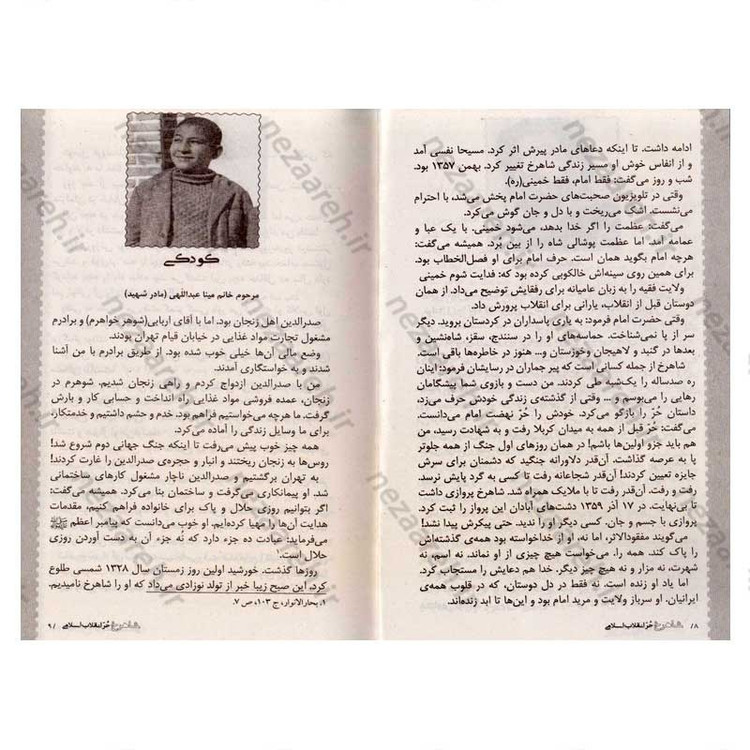 ادامه داشت. تا اینکه دعاهای مادر پیرش اثر کرد. مسیحا نفسی آمد
و از انفاس خوش او مسیر زندگی شاهرخ تغییر کرد. بهمن ۱۳۵۷ بود.
شب و روز می‌گفت: فقط امام، فقط خمینی(ره).
وقتی در تلویزیون صحبت‌های حضرت امام پخش می‌شد، با احترام
می‌نشست. اشک می‌ریخت و با دل و جان گوش می‌کرد.
می‌گفت: عظمت را اگر خدا بدهد، می‌شود خمینی. با یک عبا و
عمامه آمد. اما عظمت پوشالی شاه را از بین بُرد. همیشه می‌گفت:
هرچه امام بگوید همان است. حرف امام برای او فصل‌الخطاب بود.
برای همین روی سینه‌اش خالکوبی کرده بود که: فدایت شوم خمینی
ولایت فقیه را به زبان عامیانه برای رفقایش توضیح می‌داد. از همان
دوستان قبل از انقلاب، یارانی برای انقلاب پرورش داد.
وقتی حضرت امام فرمود: به یاری پاسداران در کردستان بروید. دیگر
سر از پا نمی‌شناخت. حماسه‌های او را در سنندج، سقز، شاه‌نشین و
بعدها در گنبد و لاهیجان و خوزستان و... هنوز در خاطره‌ها باقی است.
شاهرخ از جمله کسانی است که پیر جماران در رسایشان فرمود: اینان
ره صدساله را یک‌شبه طی کردند. من دست و بازوی شما پیشگامان
رهایی را می‌بوسم و ... وقتی از گذشته‌ی زندگی خودش حرف می‌زد،
داستان حُرّ را بازگو می‌کرد. خودش را حُرّ نهضت امام می‌دانست.
می‌گفت: حُرّ قبل از همه به میدان کربلا رفت و به شهادت رسید، من
هم باید جزو اولین‌ها باشم! در همان روزهای اول جنگ از همه جلوتر
پا به عرصه گذاشت. آن‌قدر دلاورانه جنگید که دشمنان برای سرش
جایزه تعیین کردند! آن‌قدر شجاعانه رفت تا کسی به گرد پایش نرسد.
رفت و رفت. آن‌قدر رفت تا با ملایک همراه شد. شاهرخ پروازی داشت
تا بی‌نهایت. در ۱۷ آذر ۱۳۵۹ دشت‌های آبادان این پرواز را ثبت کرد.
پروازی با جسم و جان. کسی دیگر او را ندید. حتی پیکرش پیدا نشد!
می‌گویند مفقودالاثر، اما نه، او از خداخواسته بود همه‌ی گذشته‌اش
را پاک کند. همه را. می‌خواست هیچ چیزی از او نماند. نه اسم، نه
شهرت، نه مزار و نه هیچ چیز دیگر. خدا هم دعایش را مستجاب کرد.
اما یاد او زنده است. نه فقط در دل دوستان، که در قلوب همه‌ی
ایرانیان. او سرباز ولایت و مرید امام بود و این‌ها تا ابد زنده‌اند.
۸/ شاهرخ حُرّ انقلاب اسلامی
کودکی
مرحوم خانم مینا عبداللهی (مادر شهید)
صدرالدین اهل زنجان بود. اما با آقای اربابی(شوهر خواهرم) و برادرم
مشغول تجارت مواد غذایی در خیابان قیام تهران بودند.
وضع مالی آن‌ها خیلی خوب شده بود. از طریق برادرم با من آشنا
شدند و به خواستگاری آمدند.
من با صدرالدین ازدواج کردم و راهی زنجان شدیم. شوهرم در
زنجان، عمده فروشی مواد غذایی راه انداخت و حسابی کار و بارش
گرفت. ما هرچه می‌خواستیم فراهم بود. خدم و حشم داشتیم و خدمتکار،
برای ما وسایل زندگی را آماده می‌کرد.
همه چیز خوب پیش می‌رفت تا اینکه جنگ جهانی دوم شروع شد!
روس‌ها به زنجان ریختند و انبار و حجره‌ی صدرالدین را غارت کردند!
به تهران برگشتیم و صدرالدین ناچار مشغول کارهای ساختمانی
شد. او پیمانکاری می‌گرفت و ساختمان بنا می‌کرد. همیشه می‌گفت:
اگر بتوانیم روزی حلال و پاک برای خانواده فراهم کنیم، مقدمات
هدایت آن‌ها را مهیا کرده‌ایم. او خوب می‌دانست که پیامبر اعظم ﷺ
می‌فرماید: عبادت ده جزء دارد که نُه جزء آن به دست آوردن روزی
حلال است.۱
روزها گذشت. خورشید اولین روز زمستان سال ۱۳۲۸ شمسی طلوع
کرد. این صبح زیبا خبر از تولد نوزادی می‌داد که او را شاهرخ نامیدیم.
۱. بحارالانوار، ج ۱۰۳، ص ۷.
شاهرخ حُرّ انقلاب اسلامی /۹
nezaareh.ir